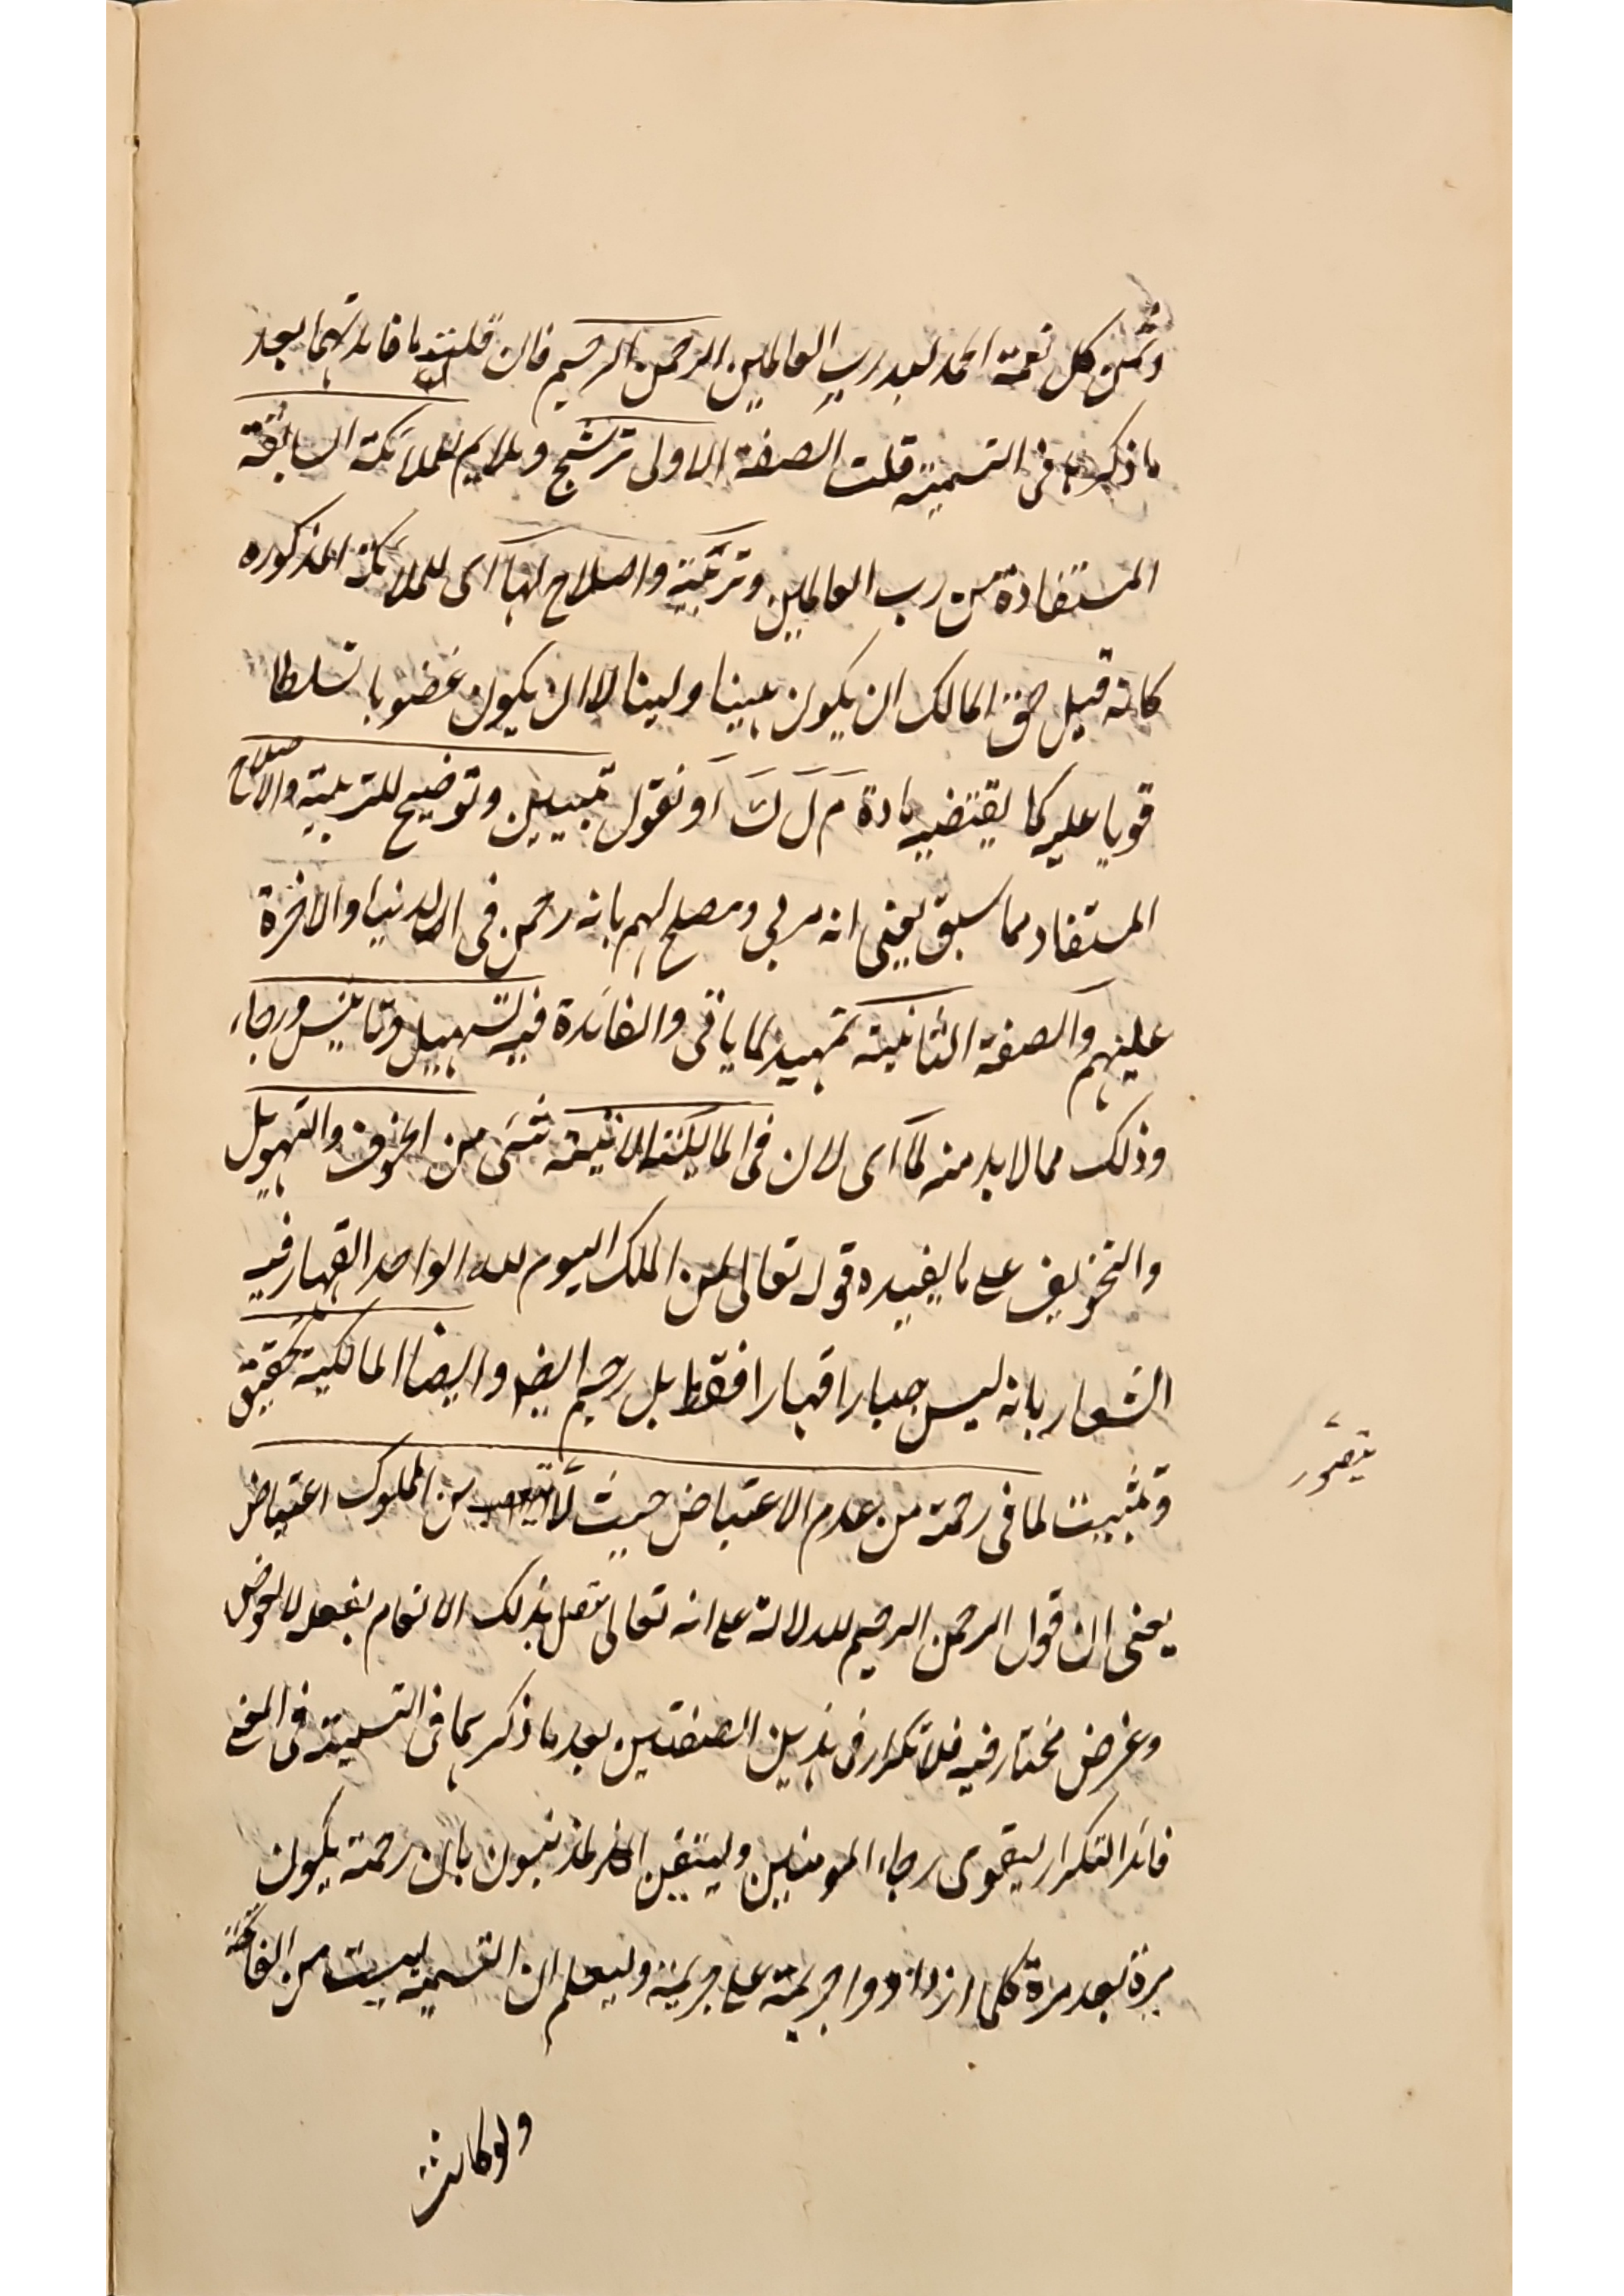 وثمن كل نعمة الحمد لله رب العالمين الرحمن الرحيم فان قلت ما فائدتهما بعد
ما ذكرنا فى التسمية قلت الصفة الاولى ترشيح وملايم للملائكة السابقة
المستفادة من رب العالمين وتربية واصلاح لها اى للملائكة المذكوره
كانه قيل حق المالك ان يكون هينا ولينا لا ان يكون غضوبا تسلطا
قويا عليه كما يقتضيه مادة م ل ك او نقول تبيين وتوضيح للتربية والاصلاح
المستفاد مما سبق يعنى انه مربي ومصلح لهم بانه رحمن فى الدنيا والاخرة
عليهم والصفة الثانية تمهيد لما ياتى والفائدة فيه تسهيل وتانيس ورجاء
وذلك مما لا بد منه لما اى لان فى المالكية الاتية شئ من الخوف والتهويل
والتخويف على ما يفيده قوله تعالى لمن الملك اليوم لله الواحد القهار فيه
اشعار بانه ليس جبارا قهارا فقط بل رحيم ايضا وايضا المالكية تحقيق
وتثبيت لما فى رحمته من عدم الاعتياض حيث لا من الملوك اعتياض
يتصور
يعنى ان قول الرحمن الرحيم للدلالة على انه تعالى متفضل بذلك الانعام بفعله لا لعوض
وغرض مختار فيه فلا تكرار فى هذين الصفتين بعد ما ذكر بهما فى التسمية فى المعنى
فائدة التكرار ليقوى رجاء المومنين وليتيقن المذنبون بان رحمته يكون
مرة بعد مرة كلما ازدادوا جريمة على جريمة وليعلم ان التسمية ليست من الفاتحة
ولو كانت